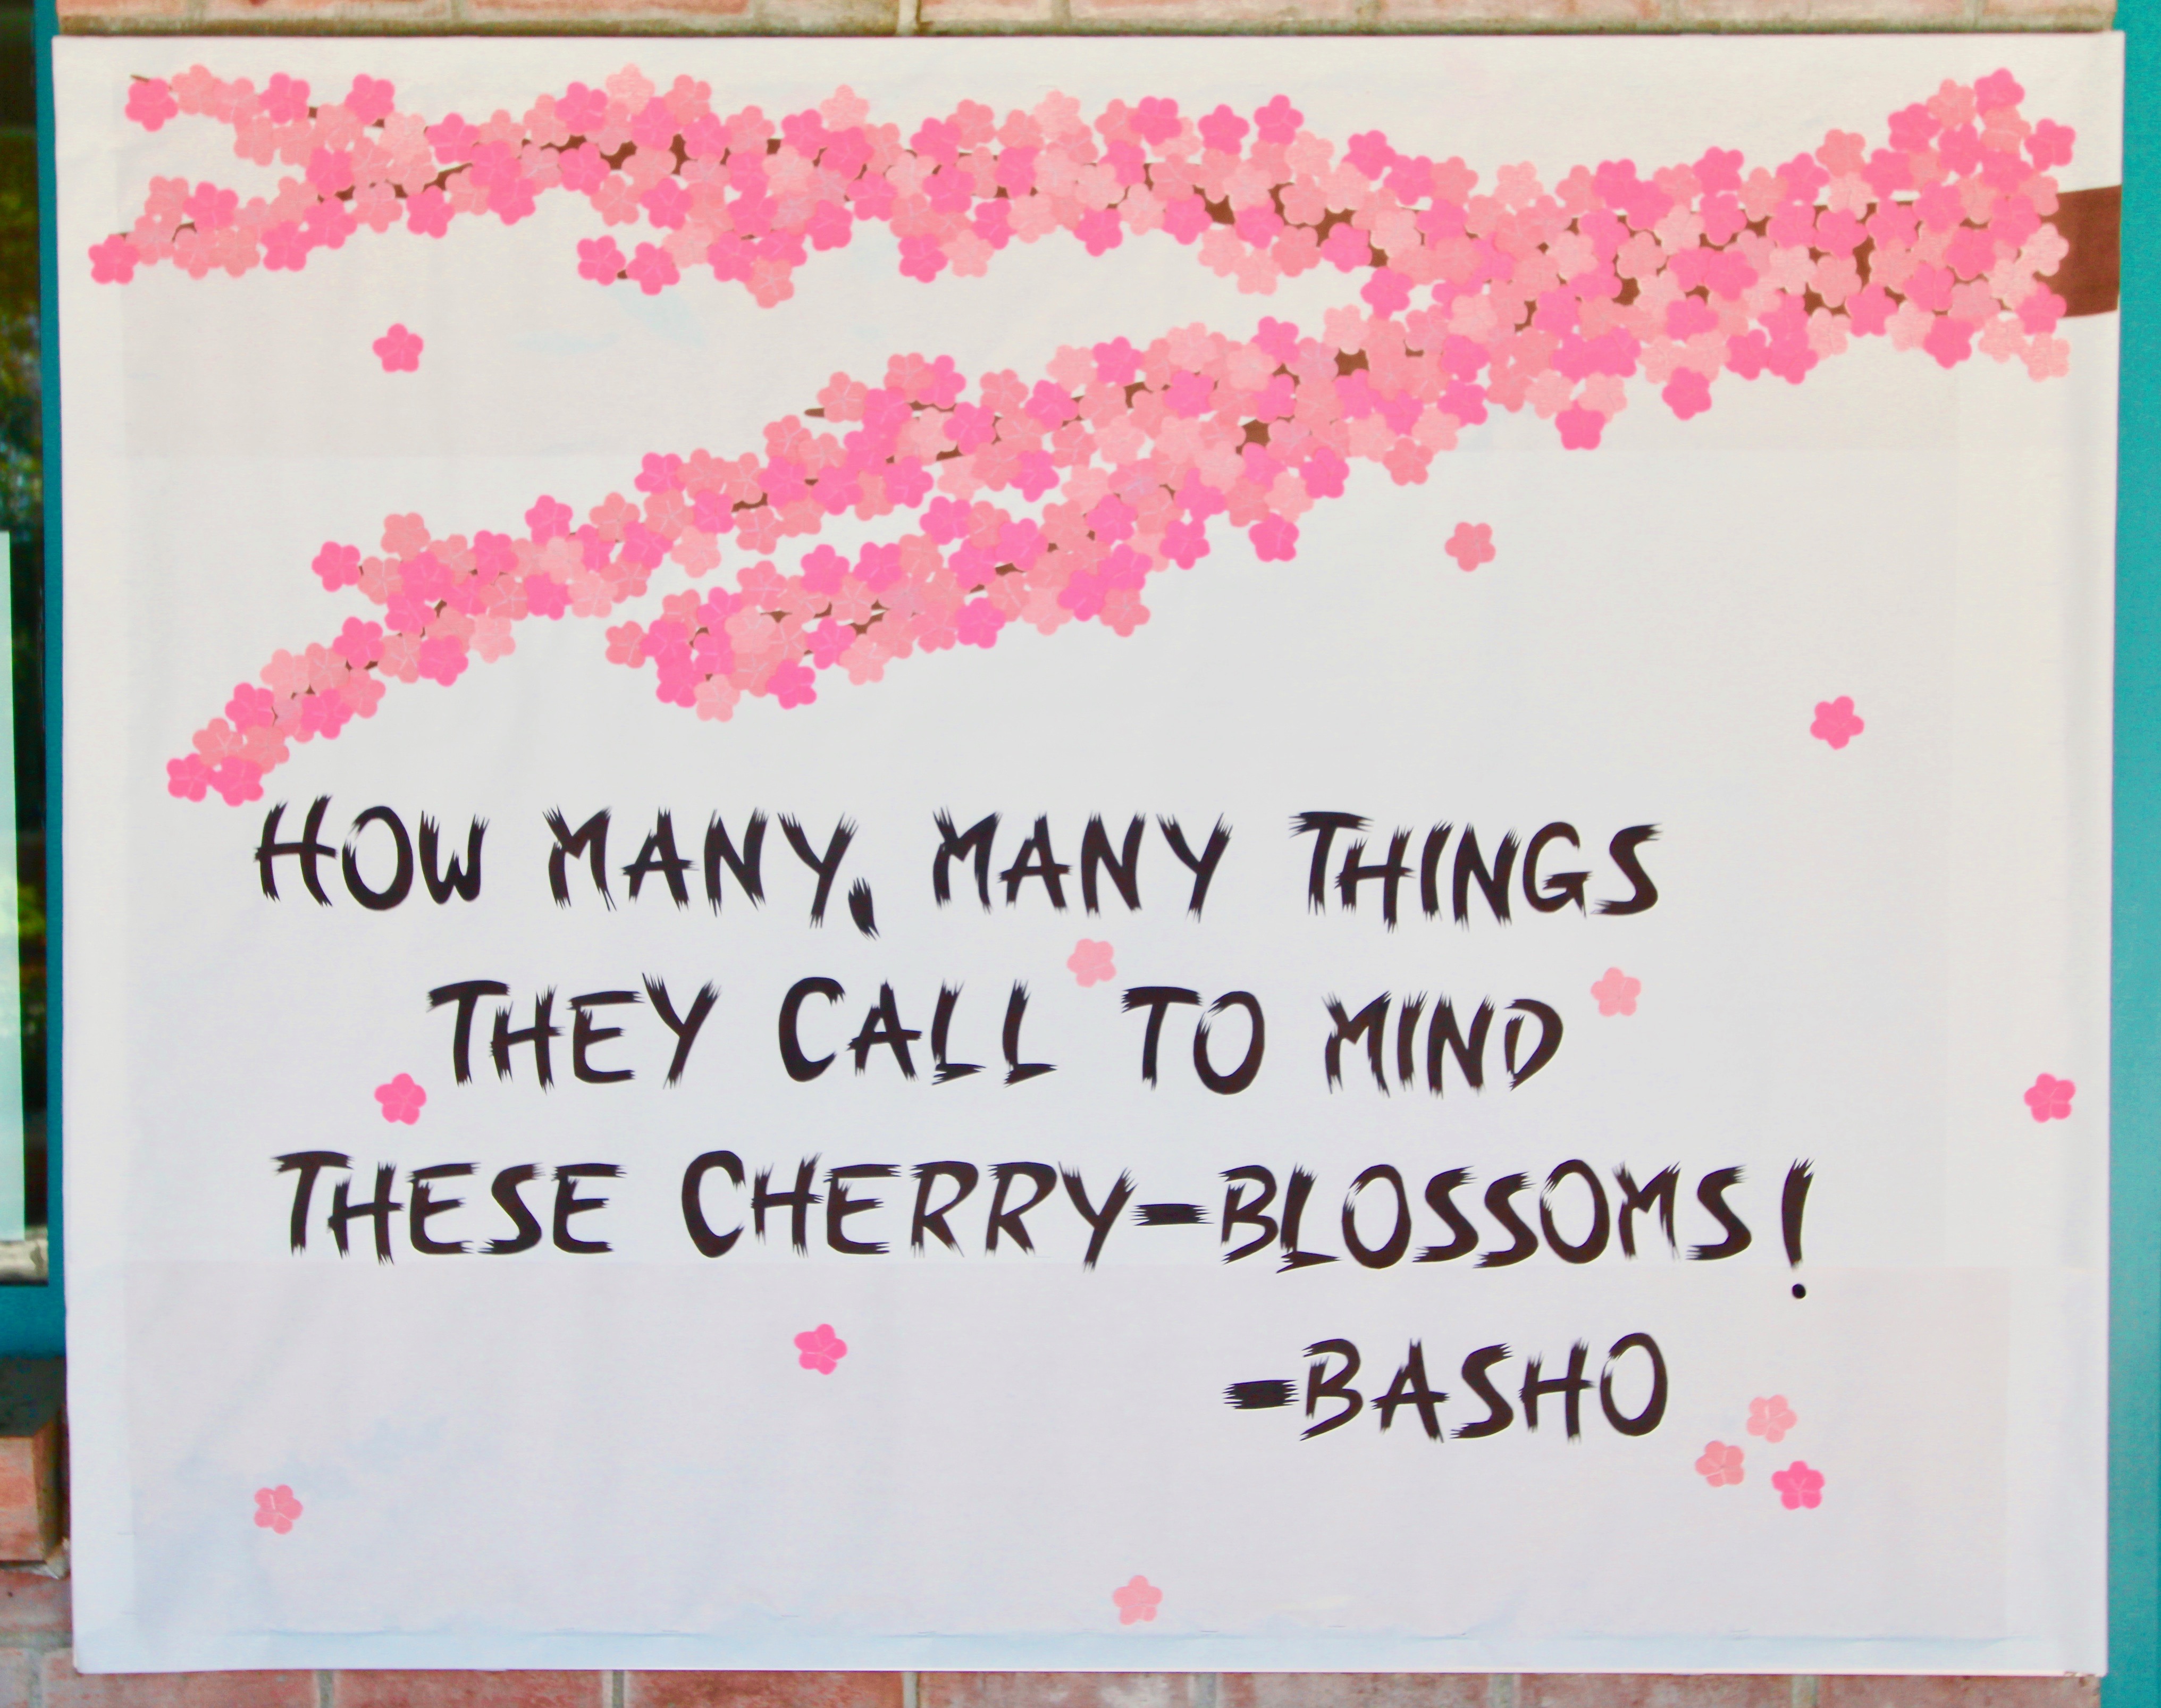 HOW MANY, MANY THINGS
THEY CALL TO MIND
THESE CHERRY-BLOSSOMS!
-BASHO